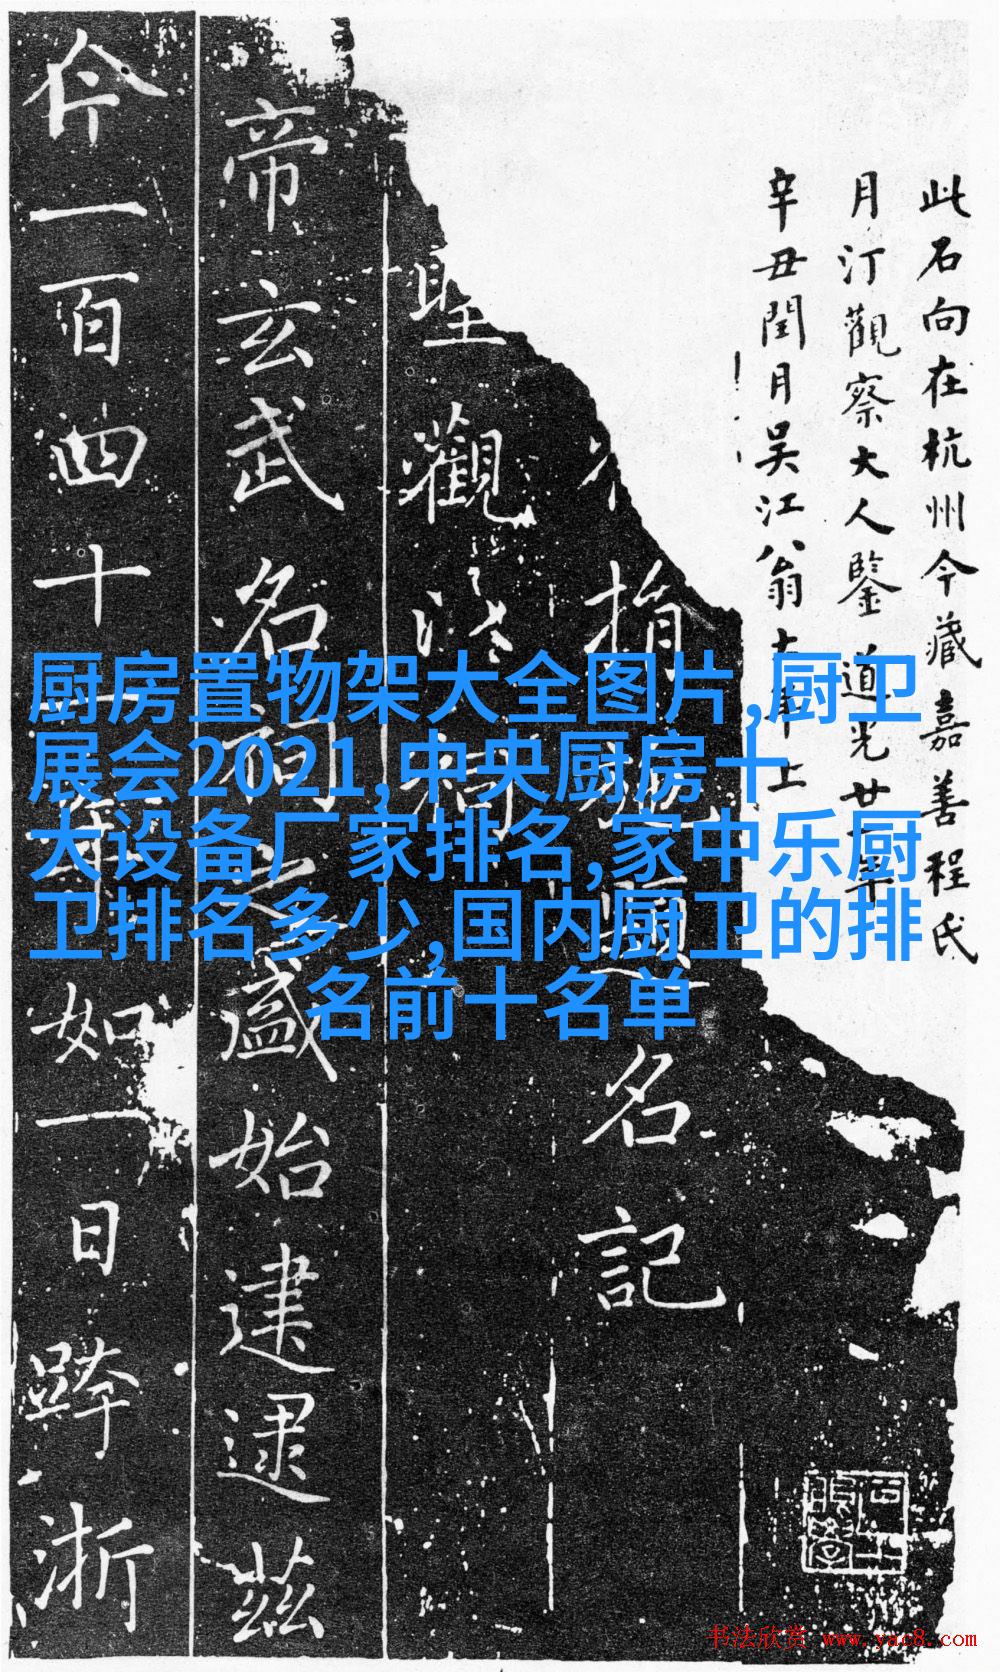 厨房置物架大全图片,厨卫
展会2021,中央厨房十
大设备厂家排名,家中乐厨
卫排名多少,国内厨卫的排
名前十名单
此石向在杭州今藏嘉善程氏
月汀觀察大人鑒 道光廿一年
辛丑閏月吳江翁大年上
指題名記
聖觀
帝玄武名祠之盛始建逮茲
今一百四十年如一日跨浙
书法欣赏 www.yac8.com